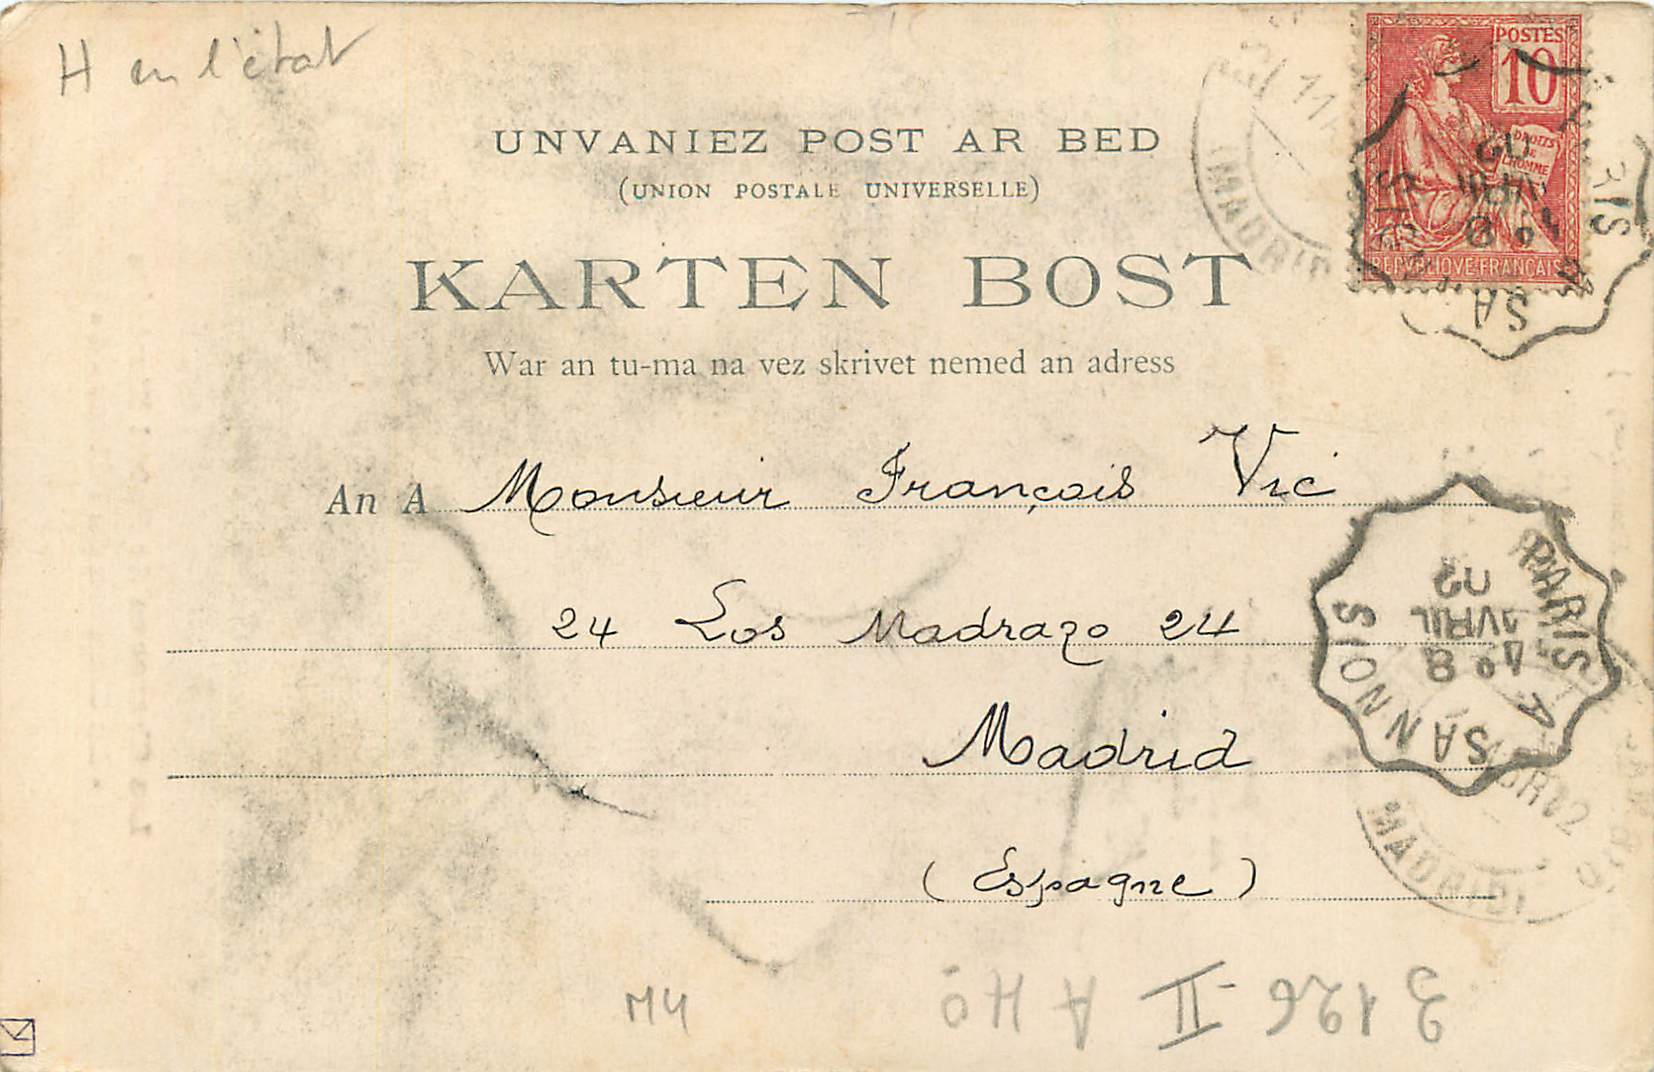 H en l'état
POSTES
10
DROITS
DE
L'HOMME
REPUBLIQUE FRANCAISE
MADRID
UNVANIEZ POST AR BED
(UNION POSTALE UNIVERSELLE)
KARTEN BOST
War an tu-ma na vez skrivet nemed an adress
An A Monsieur François Vic
24 Los Madrazo 24
Madrid
(Espagne)
PARIS A SANNOIS
8
AVRIL
02
MADRID
M4
3196 II A HO